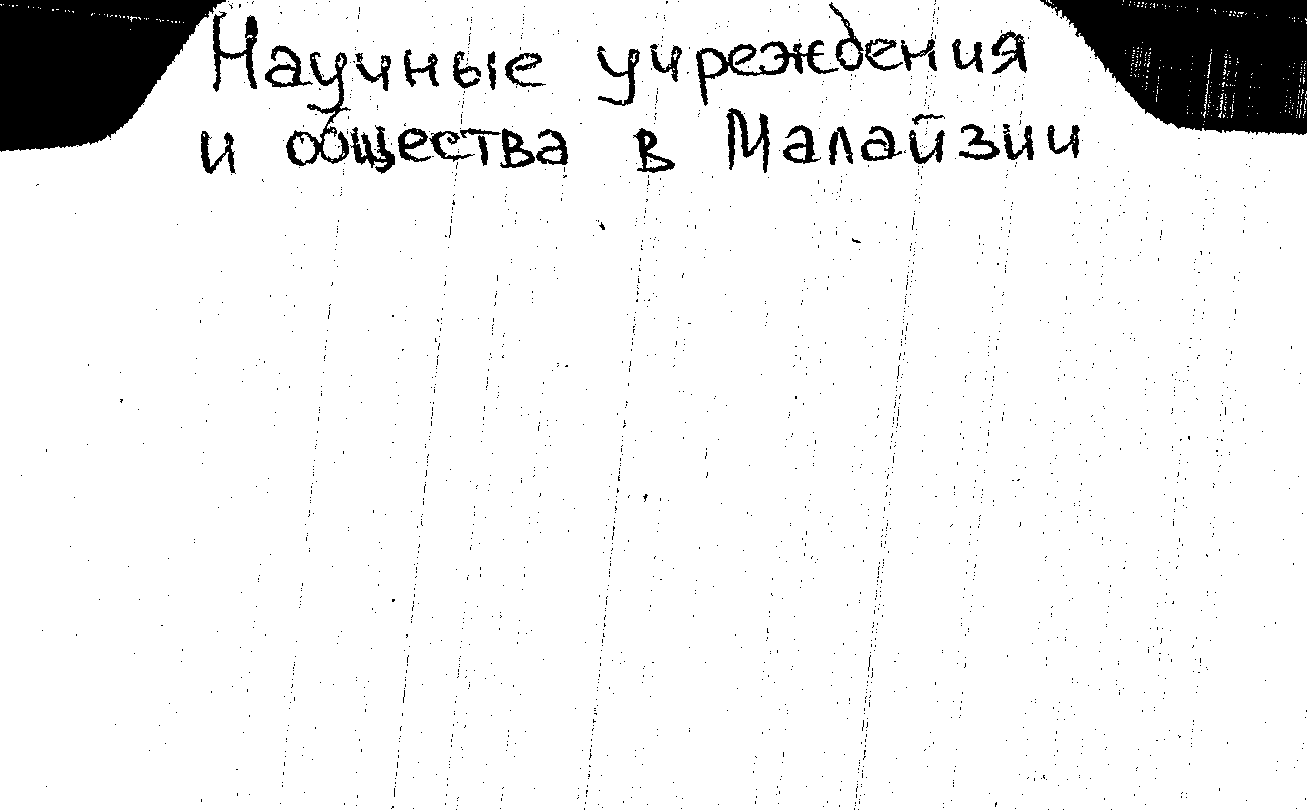 Научные учреждения
и общества в Малайзии